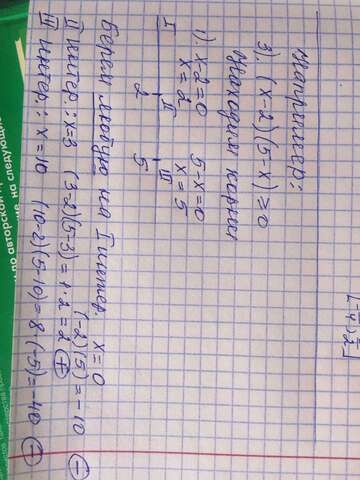 например:
3). (x-2)(5-x) ≥ 0
находим корни
1) x-2=0 5-x=0
x=2 x=5
I II III
2 5
Берем любую из I интер. x=0
(-2)(5)=-10 ⊖
II интер.: x=3 (3-2)(5-3)=1·2=2 ⊕
III интер.: x=10 (10-2)(5-10)=8(-5)=-40 ⊖